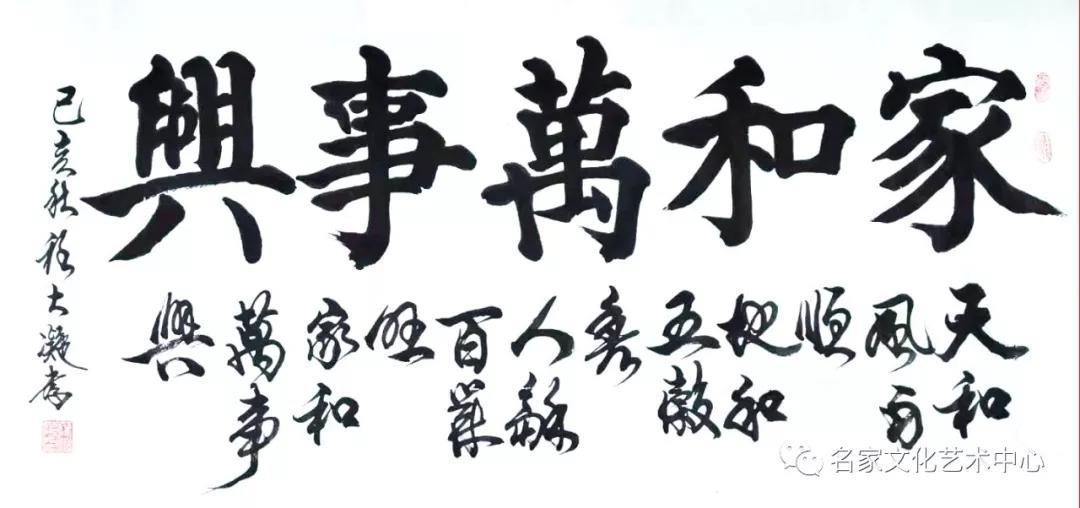 家和萬事興
天和
風雨
順
地和
五穀
秀
人龢
百業
旺
家和
萬事
興
己亥秋大凝書
名家文化艺术中心